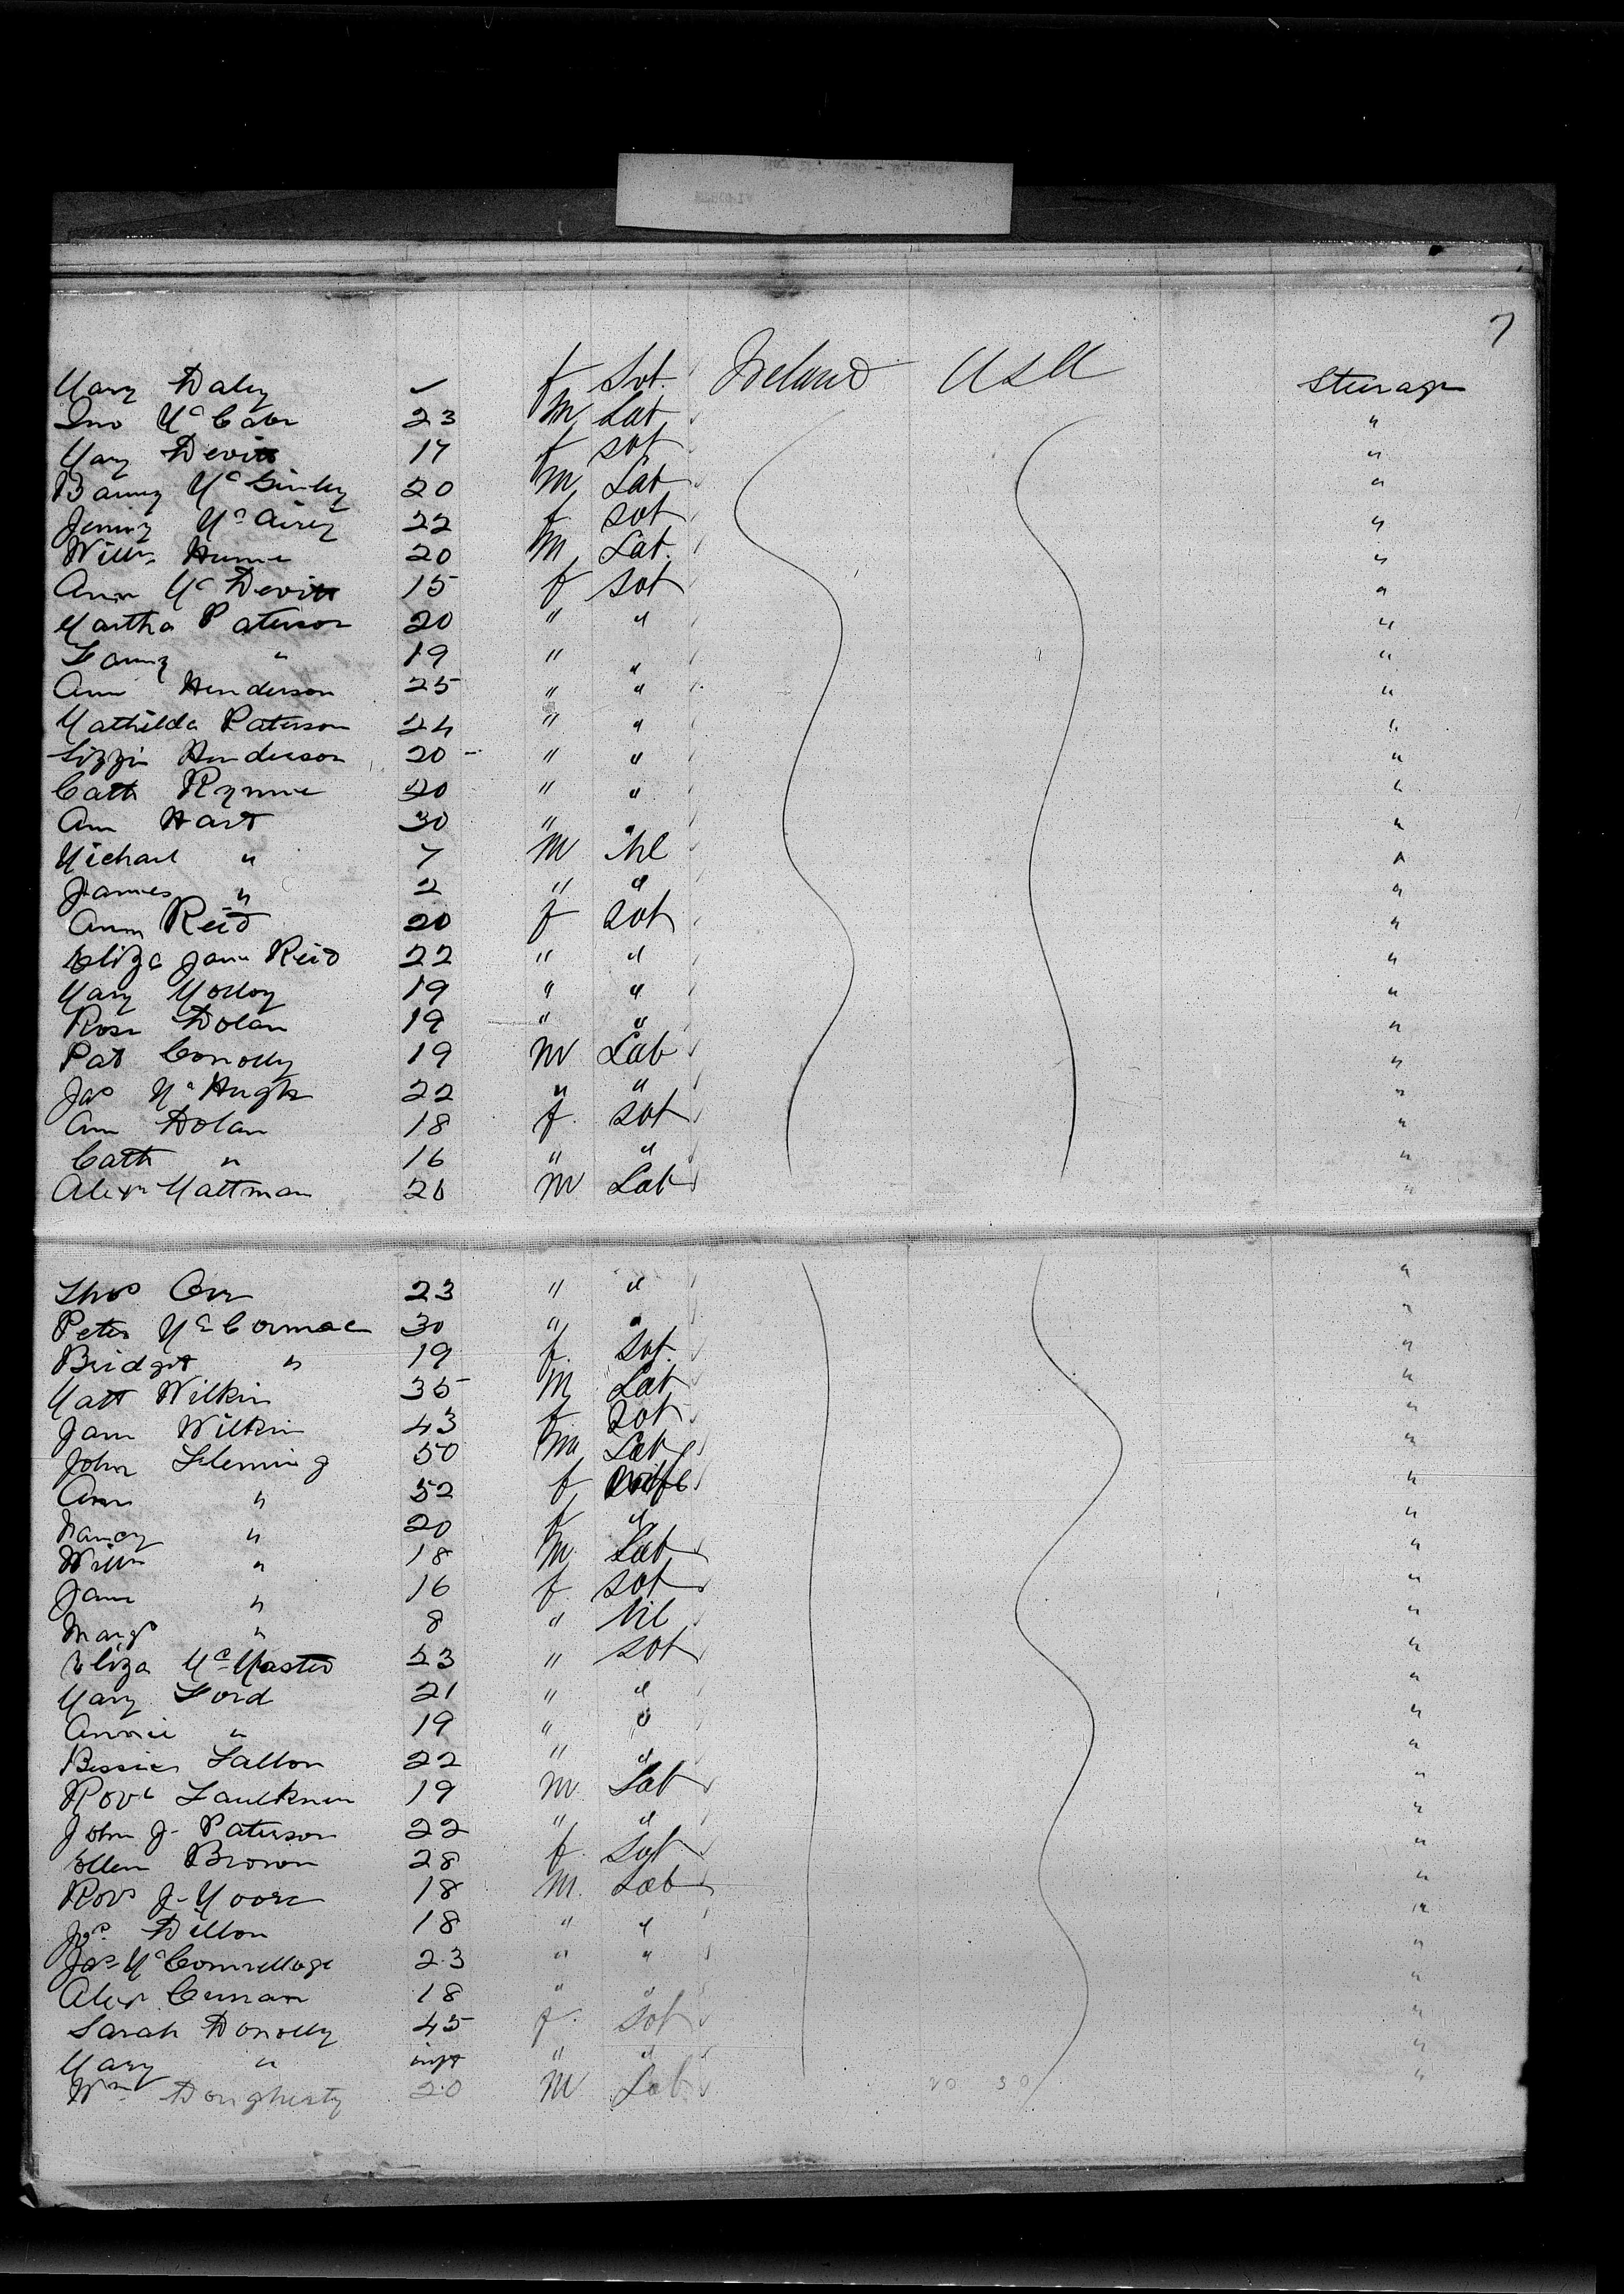 7
Mary Daley ✓ f Svt. Ireland USA Steerage
Jno McCabe 23 M Lab "
Mary Devitt 17 f svt "
Barney McGinley 20 M Lab "
Jenny McAirey 22 f svt "
Willm Hume 20 M Lab. "
Ann McDevitt 15 f svt "
Martha Paterson 20 " " "
Fanny " 19 " " "
Ann Henderson 25 " " "
Mathilda Paterson 24 " " "
Lizzie Henderson 20 " " "
Cath Rynne 20 " " "
Ann Hart 30 " " "
Michael " 7 M Nil "
James " 2 " " "
Ann Reid 20 f svt "
Eliza Jane Reid 22 " " "
Mary Molloy 19 " " "
Rose Dolan 19 " " "
Pat Conolly 19 M Lab "
Jas McHugh 22 " " "
Ann Dolan 18 f. svt "
Cath " 16 " " "
Alexr Maltman 20 M Lab "
Thos Orr 23 " " "
Peter McCormac 30 " " "
Bridget " 19 f. svt. "
Matt Wilkin 35 M Lab "
Jane Wilkin 43 f svt "
John Fleming 50 M Lab "
Ann " 52 f wife "
Nancy " 20 f " "
Willm " 18 M. Lab "
Jane " 16 f svt "
Margt " 8 " Nil "
Eliza McMaster 23 " svt "
Mary Ford 21 " " "
Annie " 19 " " "
Bessie Fallon 22 " " "
Robt Faulkner 19 M. Lab "
John J. Paterson 22 " " "
Ellen Brown 28 f. Svt "
Robt J. Moore 18 M. Lab "
Jas. Dillon 18 " " "
Jas 23 " " "
Alexr 18 " " "
Sarah Donolly 45 f. Svt "
Mary " inft " " "
Wm Dougherty 20 M Lab "